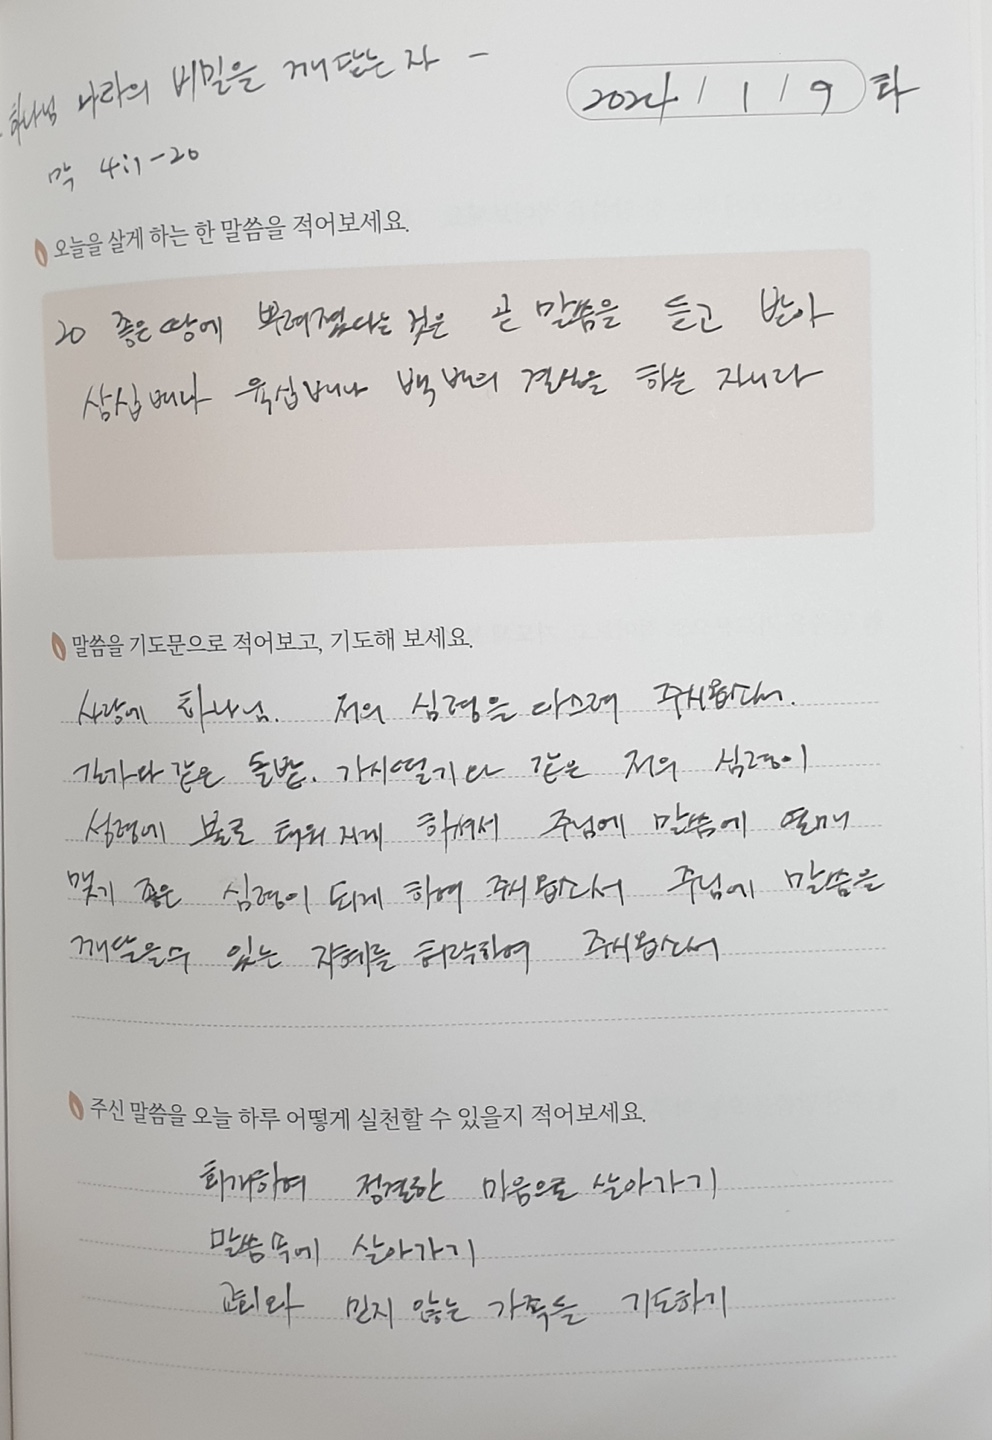 하나님 나라의 비밀을 깨닫는 자 -
2024 / 1 / 9 화
막 4:1-20
오늘을 살게 하는 한 말씀을 적어보세요.
20 좋은 땅에 뿌려졌다는 것은 곧 말씀을 듣고 받아
삼십배나 육십배나 백배의 결실을 하는 자니라
말씀을 기도문으로 적어보고, 기도해 보세요.
사랑에 하나님. 저의 심령을 다스려 주시옵소서.
길가와 같은 돌밭. 가시떨기와 같은 저의 심령이
성령에 불로 태워지게 하셔서 주님에 말씀에 열매
맺기 좋은 심령이 되게 하여 주시옵소서 주님에 말씀을
깨달을수 있는 지혜를 허락하여 주시옵소서
주신 말씀을 오늘 하루 어떻게 실천할 수 있을지 적어보세요.
회개하여 정결한 마음으로 살아가기
말씀속에 살아가기
교회와 믿지 않는 가족들 기도하기